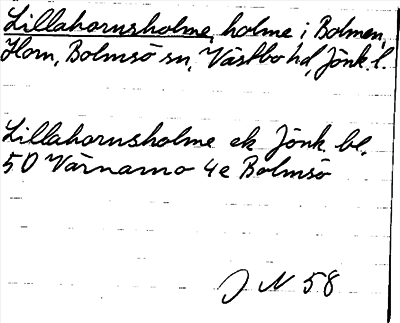 Lillahornsholme, holme i Bolmen,
Horn, Bolmsö sn, Västbo hd, Jönk. l.
Lillahornsholme ek Jönk. bl.
50 Värnamo 4e Bolmsö
J N 58